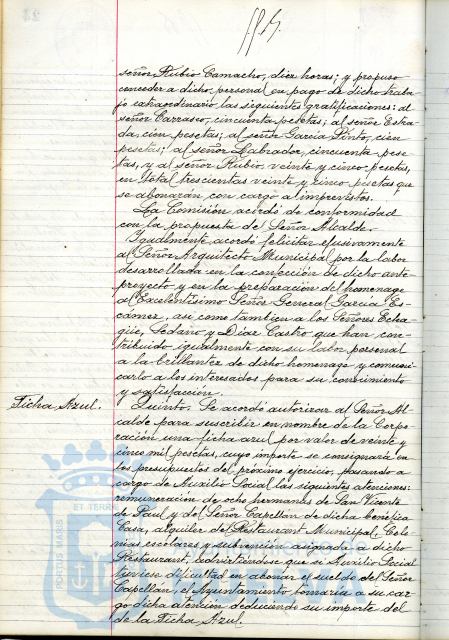 señor Rubio Camacho, diez horas; y propuso
conceder a dicho personal en pago de dicho traba-
jo extraordinario las siguientes gratificaciones: al
señor Carrasco, cincuenta pesetas; al señor Estra-
da, cien pesetas; al señor García Pinto, cien
pesetas; al señor Labrador, cincuenta pese-
tas, y al señor Rubio, veinte y cinco pesetas,
en total trescientas veinte y cinco pesetas que
se abonarán con cargo a imprevistos.
La Comisión acordó de conformidad
con la propuesta del Señor Alcalde.
Igualmente acordó felicitar efusivamente
al Señor Arquitecto Municipal por la labor
desarrollada en la confección de dicho ante-
proyecto y en la preparación del homenage
al Excelentísimo Señor General García Es-
cámez, así como tambien a los Señores Echa-
güe, Sedano y Diaz Castro que han con-
tribuido igualmente con su labor personal
a la brillantez de dicho homenage y comuni-
carlo a los interesados para su conocimiento
y satisfacción.
Ficha Azul. Quinto. Se acordó autorizar al Señor Al-
calde para suscribir en nombre de la Corpo-
ración una ficha azul por valor de veinte y
cinco mil pesetas, cuyo importe se consignará en
los presupuestos del próximo ejercicio, pasando a
cargo de Auxilio Social las siguientes atenciones:
remuneración de ocho hermanas de San Vicente
de Paul y del Señor Capellán de dicha benéfica
Casa, alquiler del Restaurant Municipal, Colo-
nias escolares y subvención asignada a dicho
Restaurant, advirtiendose que si Auxilio Social
tuviese dificultad en abonar el sueldo del Señor
Capellán, el Ayuntamiento tomaría a su car-
go dicha atención deduciendo su importe del
de la Ficha Azul.
ET TERRA
PORTUS MARIS